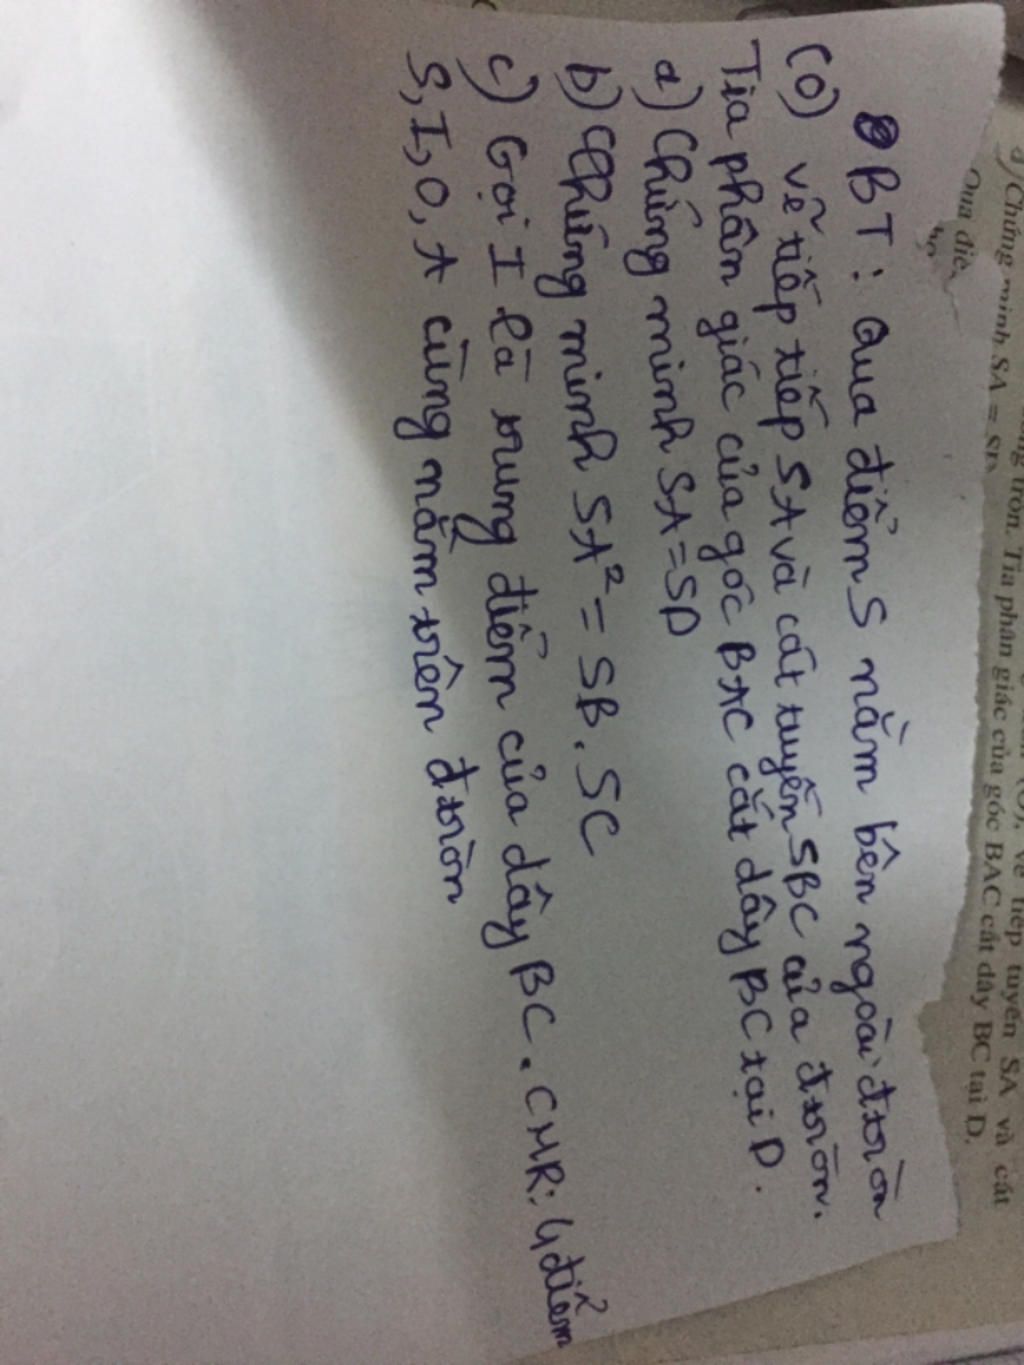 BT: Qua điểm S nằm bên ngoài đtròn
(O) vẽ tiếp tiếp SA và cát tuyến SBC của đtròn.
Tia phân giác của góc BAC cắt dây BC tại D.
a) Chứng minh SA = SD
b) Chứng minh SA² = SB. SC
c) Gọi I là trung điểm của dây BC. CMR: 4 điểm
S, I, O, A cùng nằm trên đtròn
tròn. Tia phân giác của góc BAC cắt dây BC tại D.
) Chứng minh SA = SD
Qua điể
(O), vẽ tiếp tuyến SA và cát